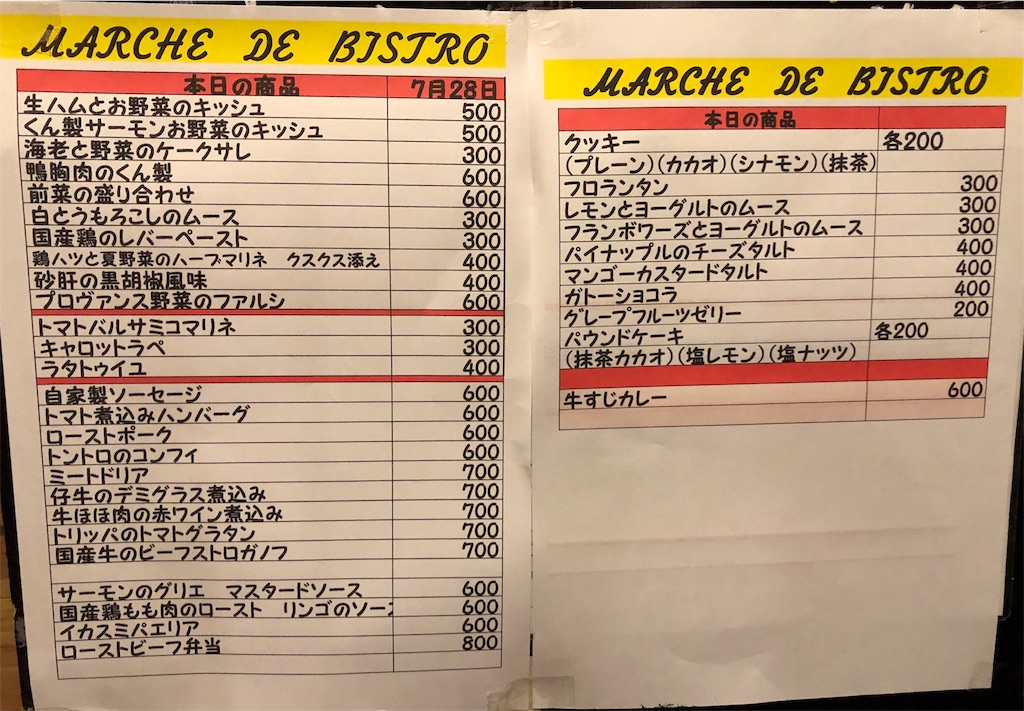 MARCHE DE BISTRO
本日の商品 7月28日
生ハムとお野菜のキッシュ 500
くん製サーモンお野菜のキッシュ 500
海老と野菜のケークサレ 300
鴨胸肉のくん製 600
前菜の盛り合わせ 600
白とうもろこしのムース 300
国産鶏のレバーペースト 300
鶏ハツと夏野菜のハーブマリネ クスクス添え 400
砂肝の黒胡椒風味 400
プロヴァンス野菜のファルシ 600
トマトバルサミコマリネ 300
キャロットラペ 300
ラタトゥイユ 400
自家製ソーセージ 600
トマト煮込みハンバーグ 600
ローストポーク 600
トントロのコンフィ 600
ミートドリア 700
仔牛のデミグラス煮込み 700
牛ほほ肉の赤ワイン煮込み 700
トリッパのトマトグラタン 700
国産牛のビーフストロガノフ 700
サーモンのグリエ マスタードソース 600
国産鶏もも肉のロースト リンゴのソー 600
イカスミパエリア 600
ローストビーフ弁当 800
MARCHE DE BISTRO
本日の商品
クッキー 各200
(プレーン)(カカオ)(シナモン)(抹茶)
フロランタン 300
レモンとヨーグルトのムース 300
フランボワーズとヨーグルトのムース 300
パイナップルのチーズタルト 400
マンゴーカスタードタルト 400
ガトーショコラ 400
グレープフルーツゼリー 200
パウンドケーキ 各200
(抹茶カカオ)(塩レモン)(塩ナッツ)
牛すじカレー 600